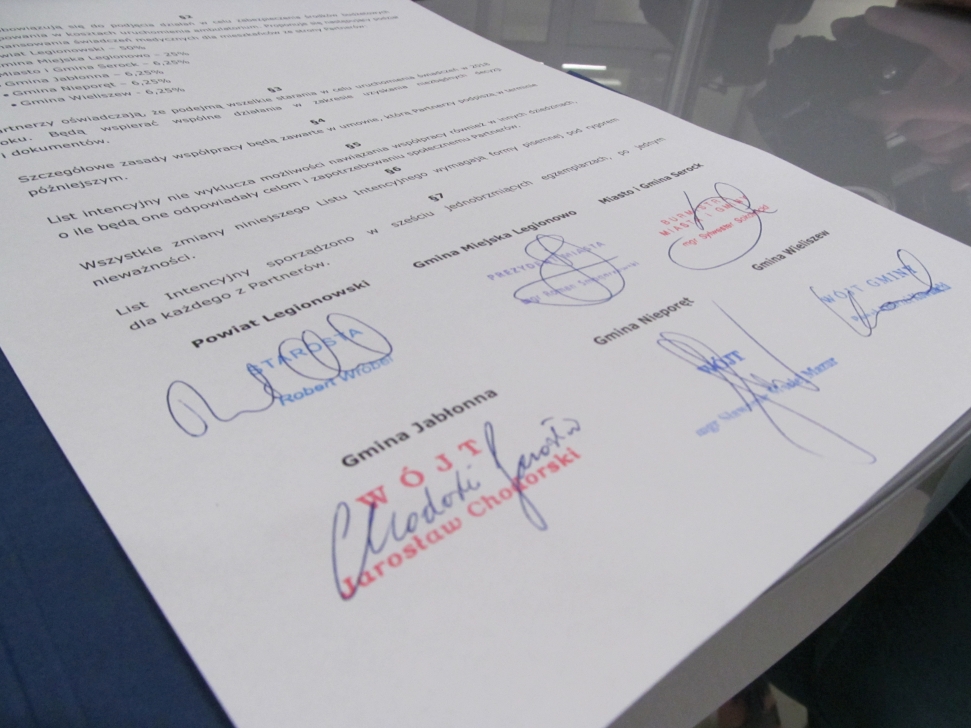 §2
zobowiązują się do podjęcia działań w celu zabezpieczenia środków
w kosztach uruchomienia
finansowania świadczeń medycznych dla mieszkańców ze strony Partnerów.
Powiat Legionowski – 50%
Gmina Miejska Legionowo – 25%
Miasto i Gmina Serock – 6,25%
Gmina Jabłonna – 6,25%
• Gmina Nieporęt – 6,25%
• Gmina Wieliszew – 6,25%
§3
Partnerzy oświadczają, że podejmą wszelkie starania w celu uruchomienia świadczeń w 2018
roku. Będą wspierać wspólne działania w zakresie uzyskania niezbędnych decyzji
i dokumentów.
§4
Szczegółowe zasady współpracy będą zawarte w umowie, którą Partnerzy podpiszą w terminie
późniejszym.
§5
List Intencyjny nie wyklucza możliwości nawiązania współpracy również w innych dziedzinach,
o ile będą one odpowiadały celom i zapotrzebowaniu społecznemu Partnerów.
§6
Wszystkie zmiany niniejszego Listu Intencyjnego wymagają formy pisemnej pod rygorem
nieważności.
§7
List Intencyjny sporządzono w sześciu jednobrzmiących egzemplarzach, po jednym
dla każdego z Partnerów.
Powiat Legionowski
Gmina Miejska Legionowo
Miasto i Gmina Serock
STAROSTA
Robert Wróbel
PREZYDENT MIASTA
mgr Roman
BURMISTRZ
MIASTA I GMINY
mgr Sylwester
Gmina Jabłonna
Gmina Nieporęt
Gmina Wieliszew
WÓJT
Chodorski Jarosław
Jarosław Chodorski
WÓJT
mgr
WÓJT GMINY